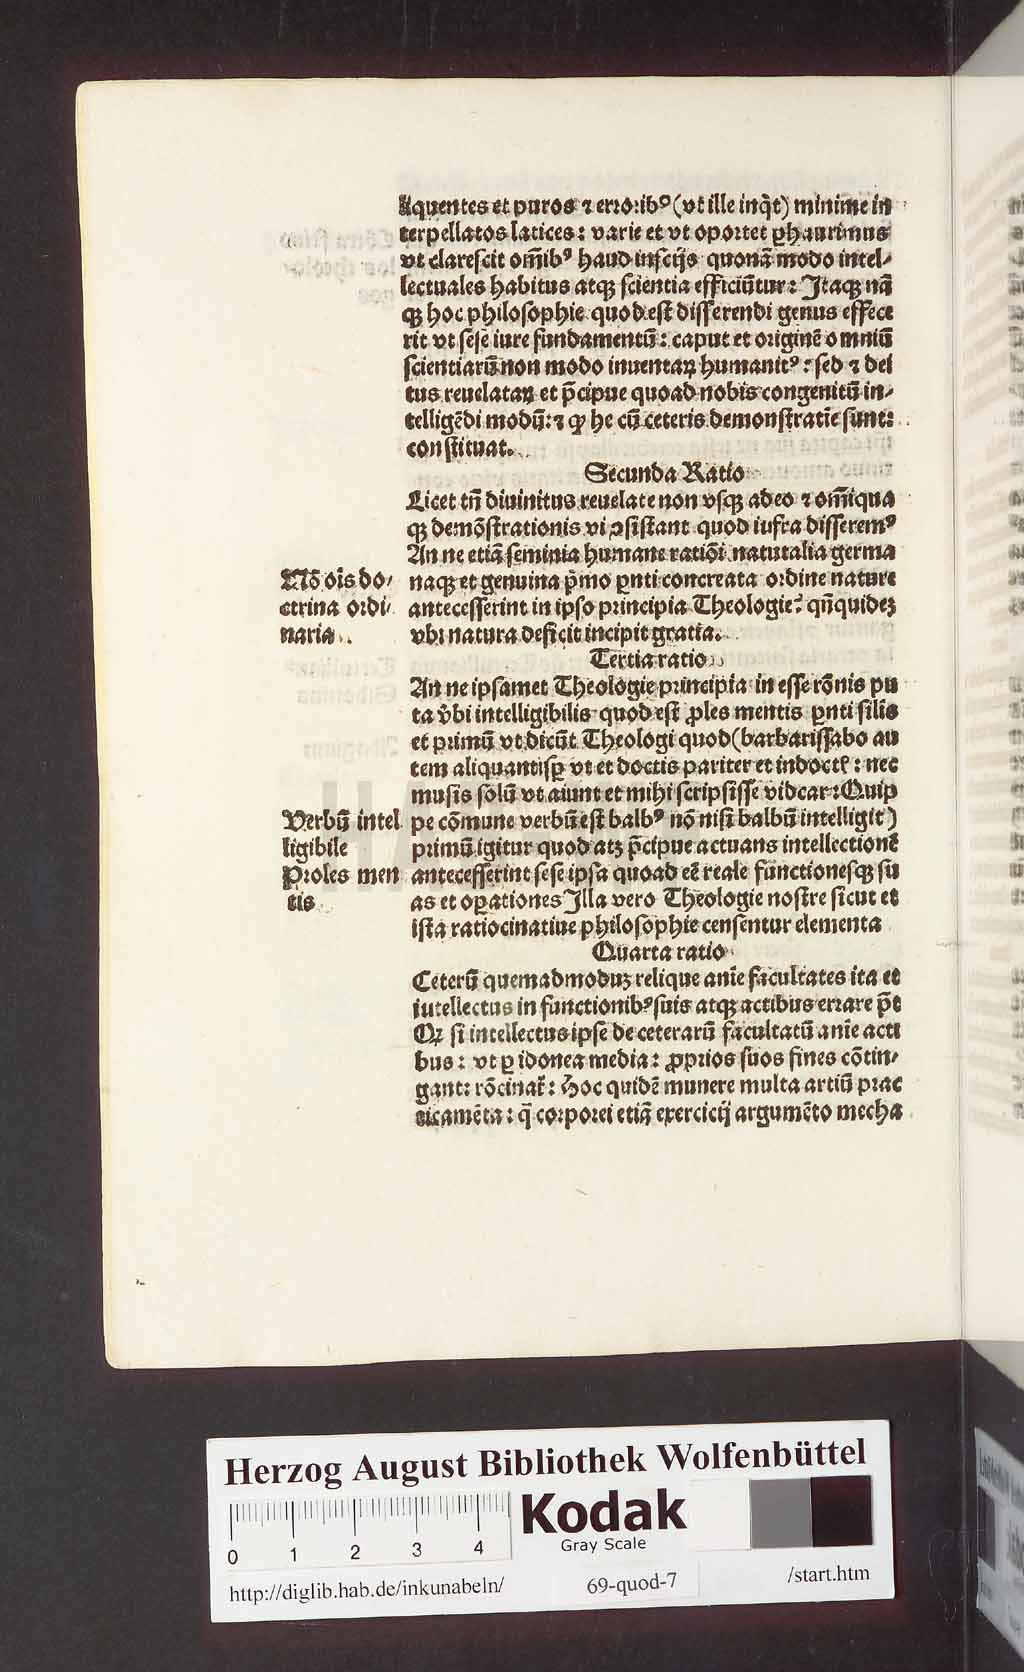 liquentes et puros ⁊ errorib⁹ (vt ille inq̃t) minime in
terpellatos latices: varie et vt oportet ꝑhaurimus
vt clarescit om̃ib⁹ haud inscijs quonã modo intel-
lectuales habitus atqꝫ scientia efficiũtur: Itaqꝫ nã
qꝫ hoc philosophie quod est differendi genus effece
rit vt sese iure fundamentũ: caput et originẽ omniũ
scientiarũ non modo inuentaꝝ humanit⁹: sed ⁊ dei
tus reuelataꝝ et p̃cipue quoad nobis congenitũ in-
telligẽdi modũ: ⁊ ꝙ he cũ ceteris demonstratiẽ sunt:
constituat.
Secunda Ratio
Licet tñ diuinitus reuelate non vsqꝫ adeo ⁊ om̃iqua
qꝫ demõstrationis vi ↄsistant quod iufra differem⁹
An ne etiã seminia humane ratiõi naturalia germa
Nõ oĩs do-
ctrina ordi-
naria
naqꝫ et genuina p̃mo ꝑnti concreata ordine nature
antecesserint in ipso principia Theologie? qñquideꝫ
vbi natura deficit incipit gratia.
Tertia ratio
An ne ipsamet Theologie principia in esse rõnis pu
ta v̾bi intelligibilis quod est ꝓles mentis ꝑnti silĩs
et primũ vt dicũt Theologi quod (barbarissabo au
tem aliquantisꝑ vt et doctis pariter et indoctꝭ: nec
musis solũ vt aiunt et mihi scripsisse videar: Quip
Verbũ intel
ligibile
Proles men
tis
pe cõmune verbũ est balb⁹ nõ nisi balbũ intelligit)
primũ igitur quod atꝫ p̃cipue actuans intellectionẽ
antecesserint sese ipsa quoad eẽ reale functionesqꝫ su
as et oꝑationes Illa vero Theologie nostre sicut et
ista ratiocinatiue philosophie censentur elementa
Quarta ratio
Ceterũ quemadmoduꝫ relique anĩe facultates ita et
iutellectus in functionib⁹ suis atqꝫ actibus errare p̃t
Qꝛ si intellectus ipse de ceterarũ facultatũ anĩe acti
bus: vt ꝑ idonea media: ꝓprios suos fines cõtin-
gant: rõcinat̃: Hoc quidẽ munere multa artiũ prac
ticamẽta: q̃ corporei etiã exercicij argumẽto mecha
Herzog August Bibliothek Wolfenbüttel
Kodak
Gray Scale
0 1 2 3 4
http://diglib.hab.de/inkunabeln/ 69-quod-7 /start.htm